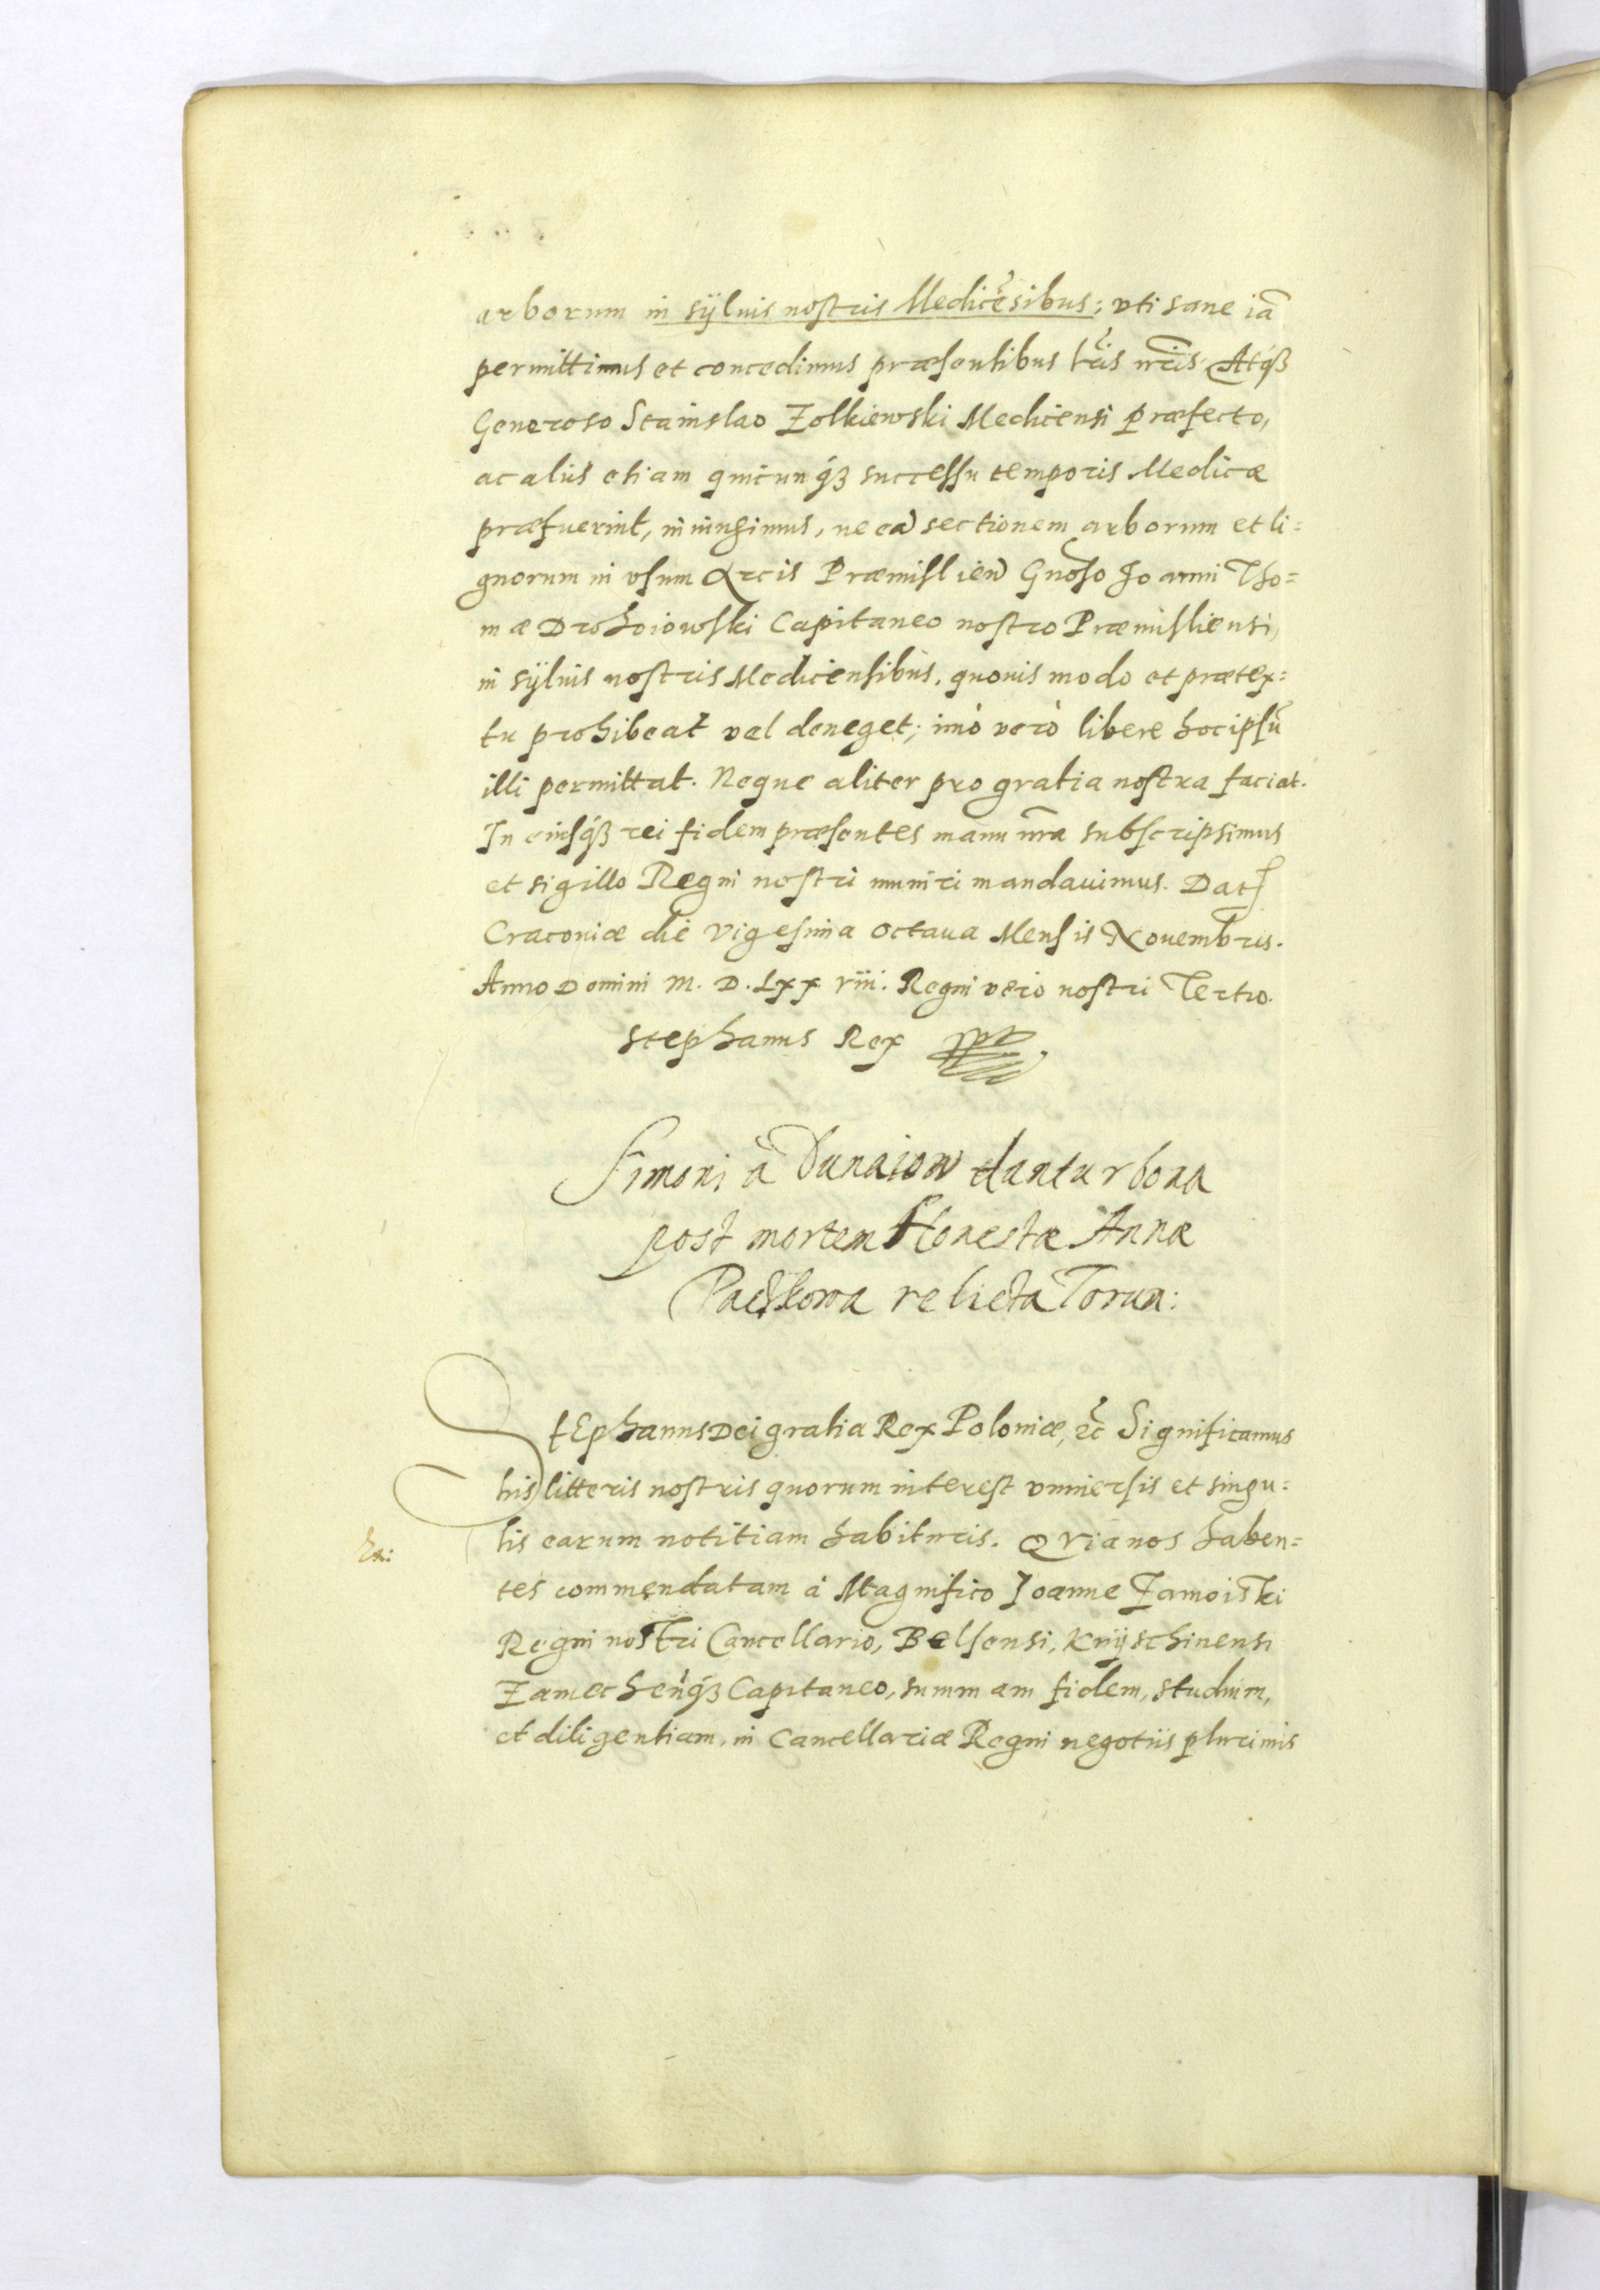 arborum in sÿluis nostris Medicẽsibus; vti sane iã
permittimus et concedimus præsentibus lr̃is nr̃is. Atq́ꝫ
Generoso Stanislao Zolkiewski Medicensi præfecto,
ac aliis etiam quicunq́ꝫ successu temporis Medicæ
præfuerint, iniungimus, ne eã sectionem arborum et li=
gnorum in vsum Arcis Præmislien̄ Gn̄oso Joanni Tho=
mæ Drohoiowski Capitaneo nostro Præmisliensi,
in sÿluis nostris Medicensibus, quouis modo et prætex=
tu prohibeat vel deneget; imò verò libere hoc ipsũ
illi permittat. Neque aliter pro gratia nostra faciat.
In cuiusq́ꝫ rei fidem præsentes manu nr̃a subscripsimus
et sigillo Regni nostri muniri mandauimus. Dat
Craconiæ die vigesima octaua Mensis Nouembris.
Anno Domini M. D. Lxx viii. Regni vero nostri Tertio.
Stephanus Rex
Simoni à Dunaiow dantur bona
post mortem Honestæ Annæ
relicta Torun:
StEphanus Dei gratia Rex Poloniæ, ꝛc̃ Significamus
his litteris nostris quorum interest vniuersis et singu=
lis earum notitiam habituris. Qvia nos haben=
tes commendatam à Magnifico Joanne Zamoiski
Regni nostri Cancellario, Belsensi, Knÿschinensi
Zamechen̄q́ꝫ Capitaneo, summam fidem, studium,
et diligentiam, in Cancellariæ Regni negotiis plurimis